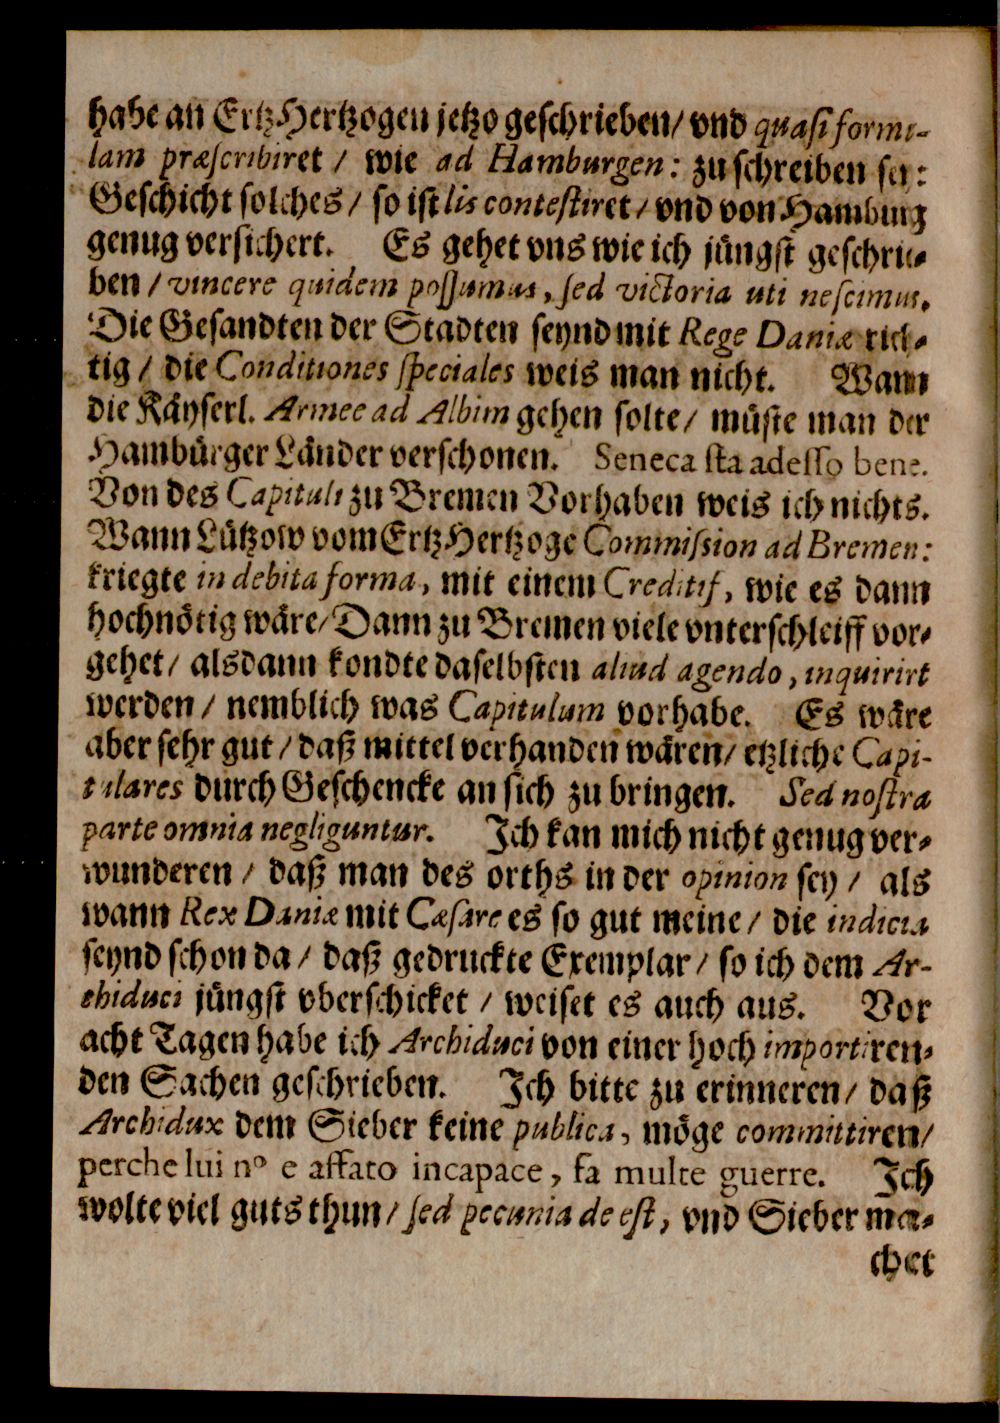 habe an ErtzHertzogen jetzo geschrieben/ vnd quasi formu-
lam præscribiret / wie ad Hamburgen: zu schreiben sey:
Geschicht solches/ so ist lis contestiret/ vnd von Hamburg
genug versichert. Es gehet vns wie ich jüngst geschrie-
ben / vincere quidem possumus, sed victoria uti nescimus.
Die Gesandten der Stadten seynd mit Rege Daniæ rich-
tig / die Conditiones speciales weis man nicht. Wann
die Käyserl. Armee ad Albim gehen solte/ müste man der
Hambürger Länder verschonen. Seneca sta adesso bene.
Von des Capituli zu Bremen Vorhaben weis ich nichts.
Wann Lützow vom ErtzHertzoge Commission ad Bremen:
kriegte in debita forma, mit einem Creditif, wie es dann
hochnötig wäre/ Dann zu Bremen viele vnterschleiff vor-
gehet/ alsdann kondte daselbsten aliud agendo, inquirirt
werden / nemblich was Capitulum vorhabe. Es wäre
aber sehr gut / daß mittel verhanden wären/ etzliche Capi-
tulares durch Geschencke an sich zu bringen. Sed nostra
parte omnia negliguntur. Ich kan mich nicht genug ver-
wunderen / daß man des orths in der opinion sey / als
wann Rex Daniæ mit Cæsare es so gut meine / die indicia
seynd schon da / daß gedruckte Exemplar / so ich dem Ar-
chiduci jüngst vberschicket / weiset es auch aus. Vor
acht Tagen habe ich Archiduci von einer hoch importiren-
den Sachen geschrieben. Ich bitte zu erinneren/ daß
Archidux dem Sieber keine publica, möge committiren/
perche lui nº e affato incapace, fa multe guerre. Ich
wolte viel guts thun / sed pecunia de est, vnd Sieber ma-
chet